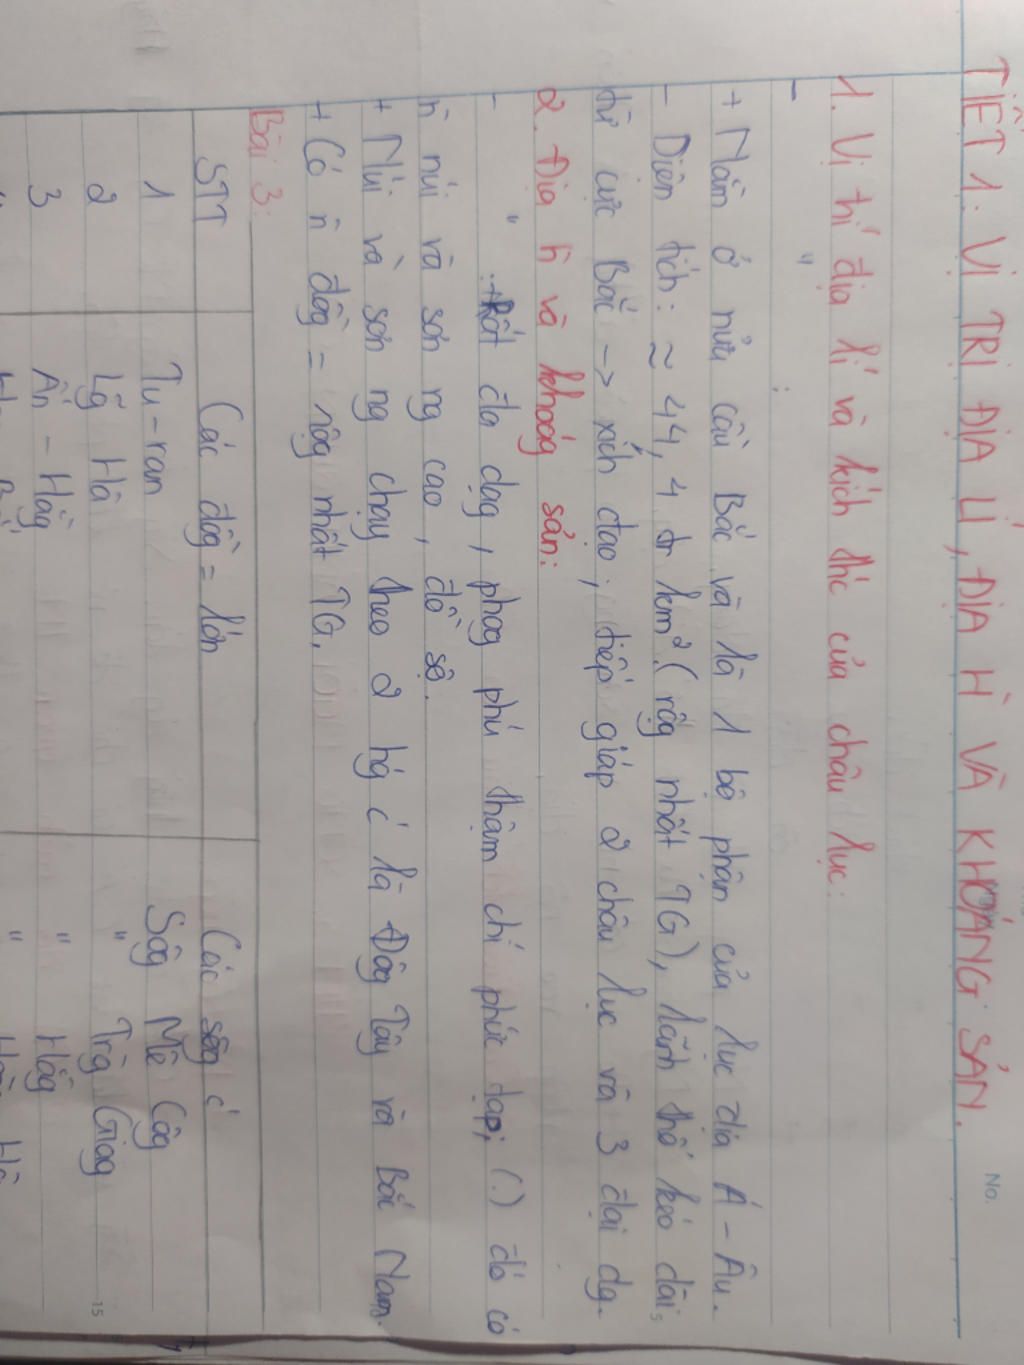 No.
TIẾT 1: VỊ TRÍ ĐỊA LÍ, ĐỊA H̀ VÀ KHOÁNG SẢN.
1. Vị trí địa lí và kích thc của châu lục:
- " :
+ Nằm ở nửa cầu Bắc và là 1 bộ phận của lục địa Á - Âu.
- Diện tích: ≈ 44,4 tr km² (rộg nhất TG), lãnh thổ kéo dài
từ cực Bắc -> xích đạo; tiếp giáp 2 châu lục và 3 đại dg.
2. Địa h̀ và khoág sản:
- " :+ Rất đa dạg, phog phú thậm chí phức tạp; (.) đó có
h̀ núi và sơn ng cao, đồ sộ.
+ Núi và sơn ng chạy theo 2 hg c' là Đôg Tây và Bắc Nam.
+ Có n̄ đồg = rộg nhất TG.
Bài 3:
STT Các đồg = lớn Các sôg c'
1 Tu-ran Sôg Mê Côg
2 Lg Hà " Trg Giag
3 Ấn - Hằg " Hằg
15